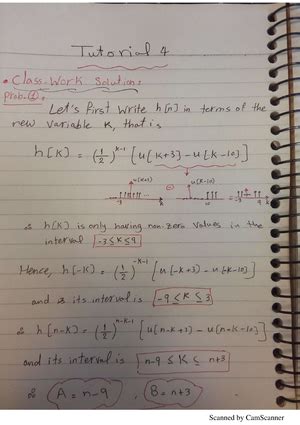 Tutorial 4
• Class-Work Solution:
prob.①:
Let's first write h[n] in terms of the
new variable K, that is
h[K] = (1/2)^{K-1} [u[K+3] - u[K-10]]
u[K+3] ⊖ u[K-10]
-3 K 10 K = -3 9
∴ h[K] is only having non zero values in the
interval -3≤K≤9
Hence, h[-K] = (1/2)^{-K-1} [u[-K+3] - u[-K-10]]
and ∴ its interval is -9≤K≤3
∴ h[n-K] = (1/2)^{n-K-1} [u[n-K+3] - u[n-K-10]]
and its interval is n-9≤K≤n+3
∴ A=n-9, B=n+3
Scanned by CamScanner